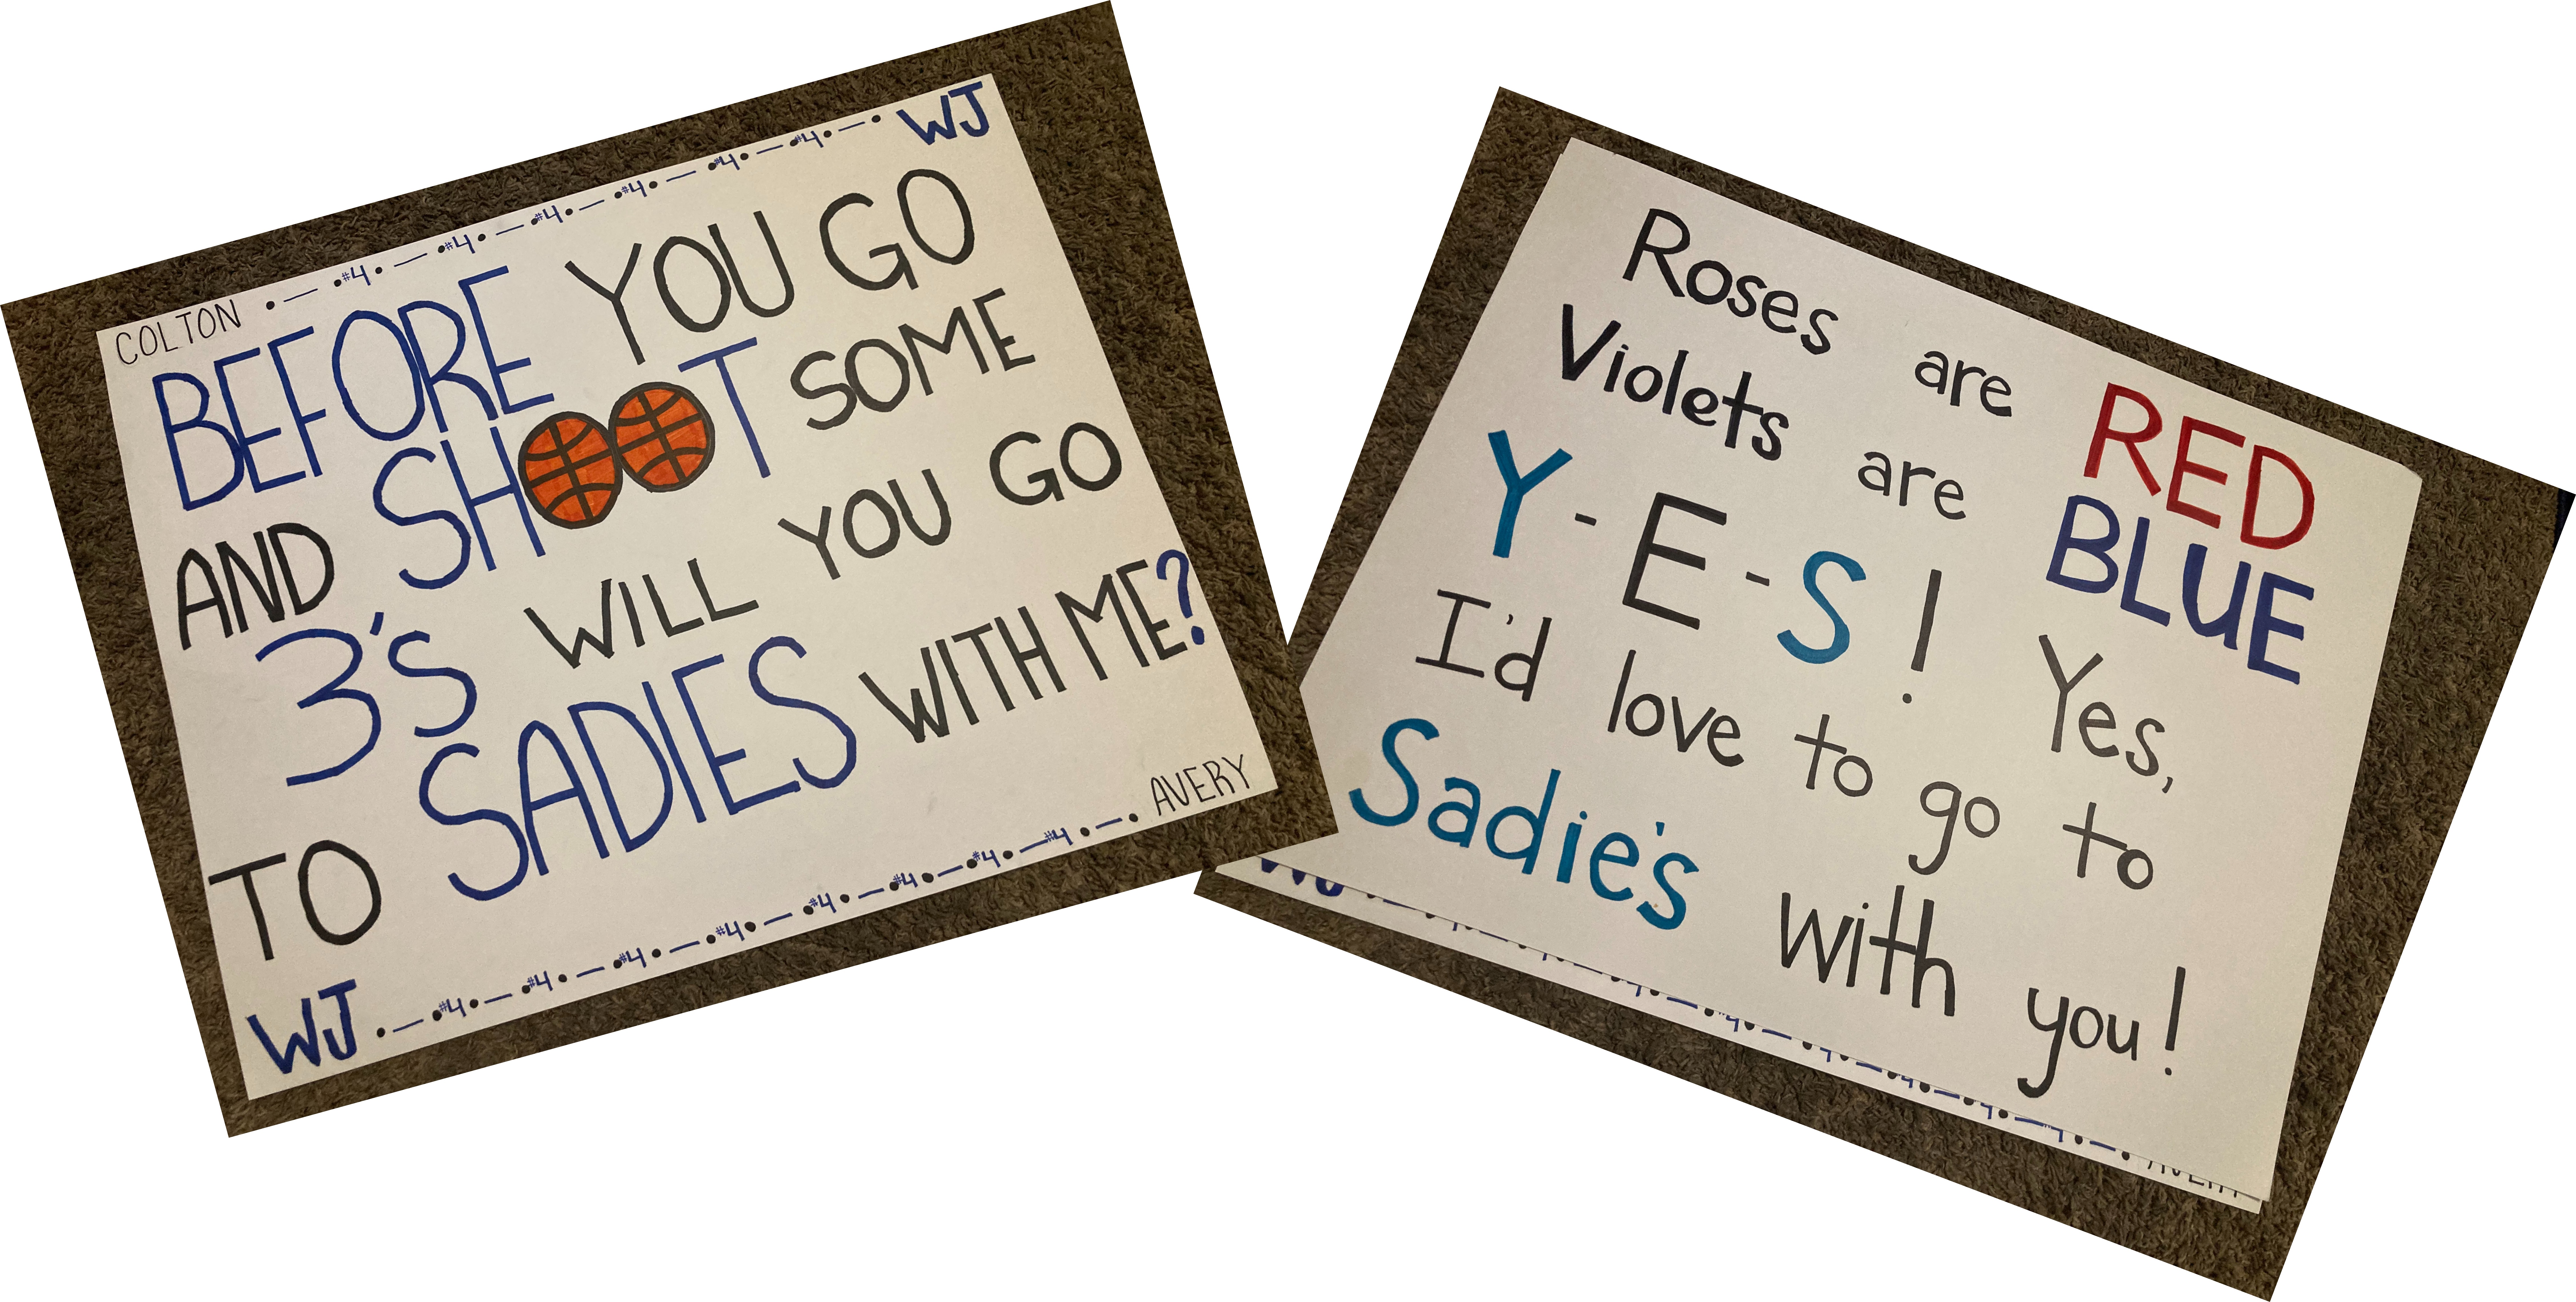 COLTON •—•#4•—•#4•—•#4•—•#4•—•#4•—•#4•—• WJ
BEFORE YOU GO
AND SHOOT SOME
3'S WILL YOU GO
TO SADIES WITH ME?
AVERY
WJ •—•#4•—•#4•—•#4•—•#4•—•#4•—•#4•—•#4•—#4•—•
Roses are RED
Violets are BLUE
Y-E-S! Yes,
I'd love to go to
Sadie's with you!